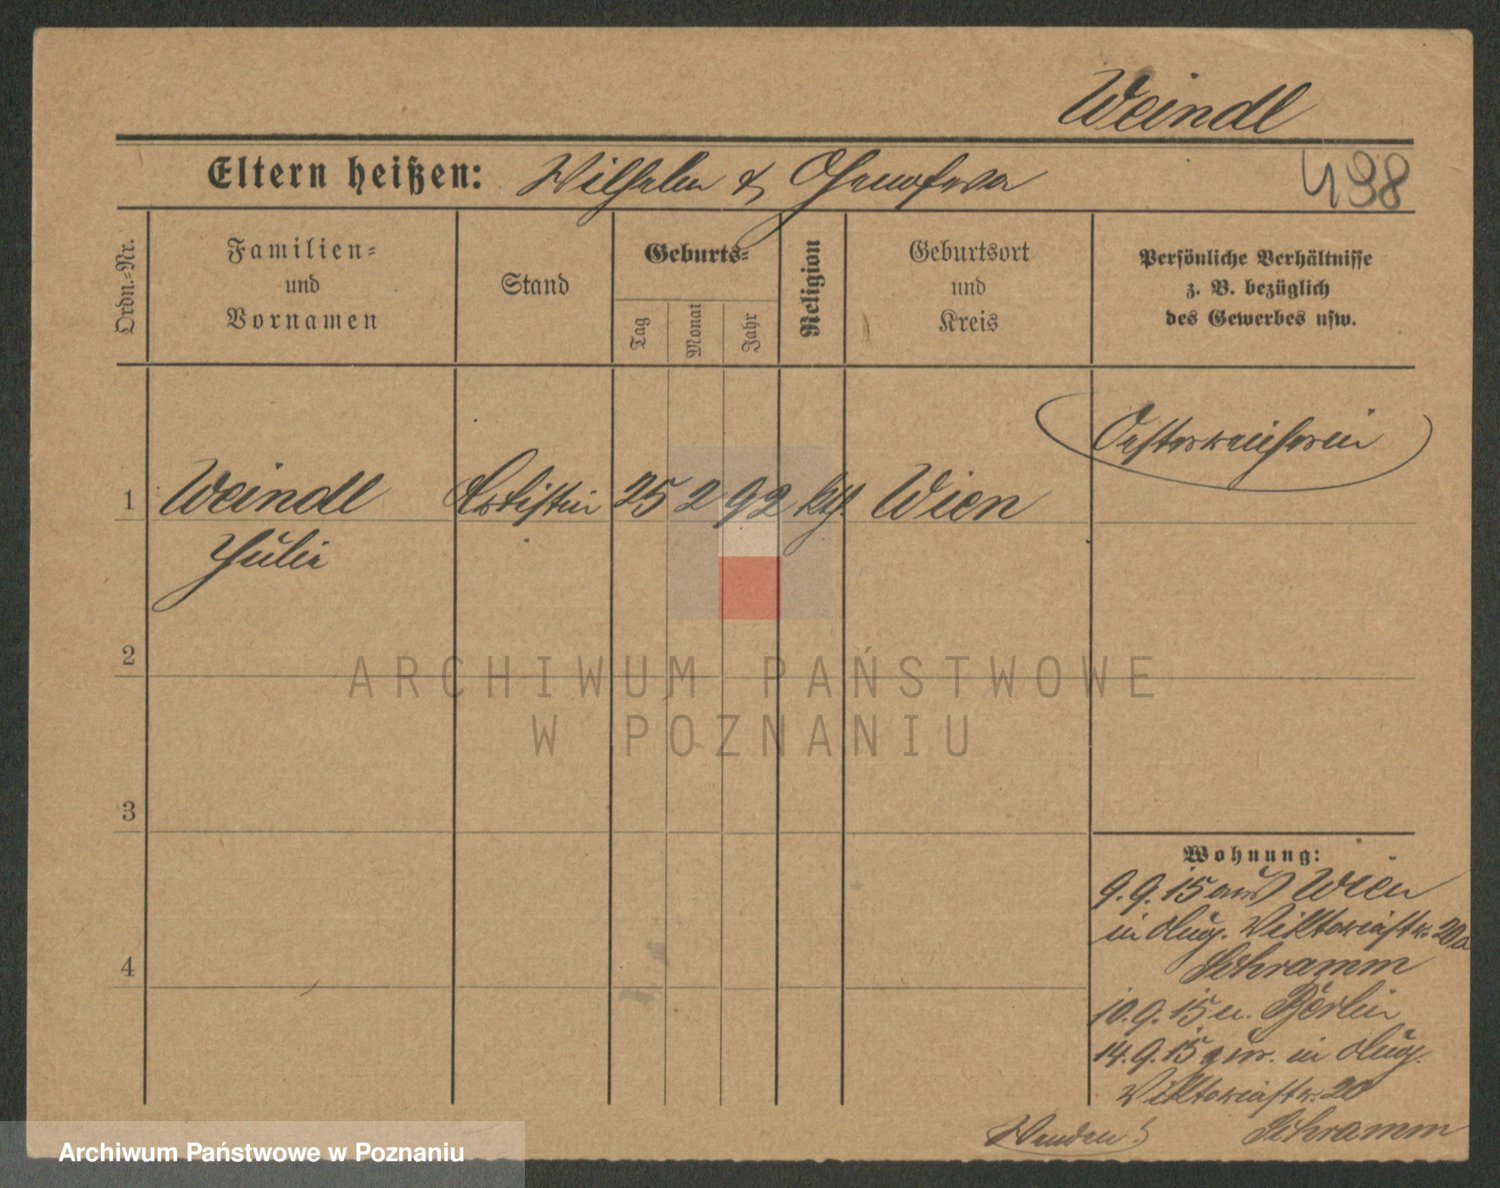 Weindl
Eltern heißen: Wilhelm & Genofeva
498
Ordn.-Nr.
Familien-
und
Vornamen
Stand
Geburts-
Tag
Monat
Jahr
Religion
Geburtsort
und
Kreis
Persönliche Verhältnisse
z. B. bezüglich
des Gewerbes usw.
Oesterreicherin
1 Weindl Artistin 25 2 92 kth. Wien
Julie
2
3
4
ARCHIWUM PAŃSTWOWE
W POZNANIU
Wohnung:
9.9.15 aus Wien
in Viktoriastr. 20a
Schramm
10.9.15 n. Berlin
14.9.15 zur. in
Viktoriastr. 20
Schramm
Wenden!
Archiwum Państwowe w Poznaniu